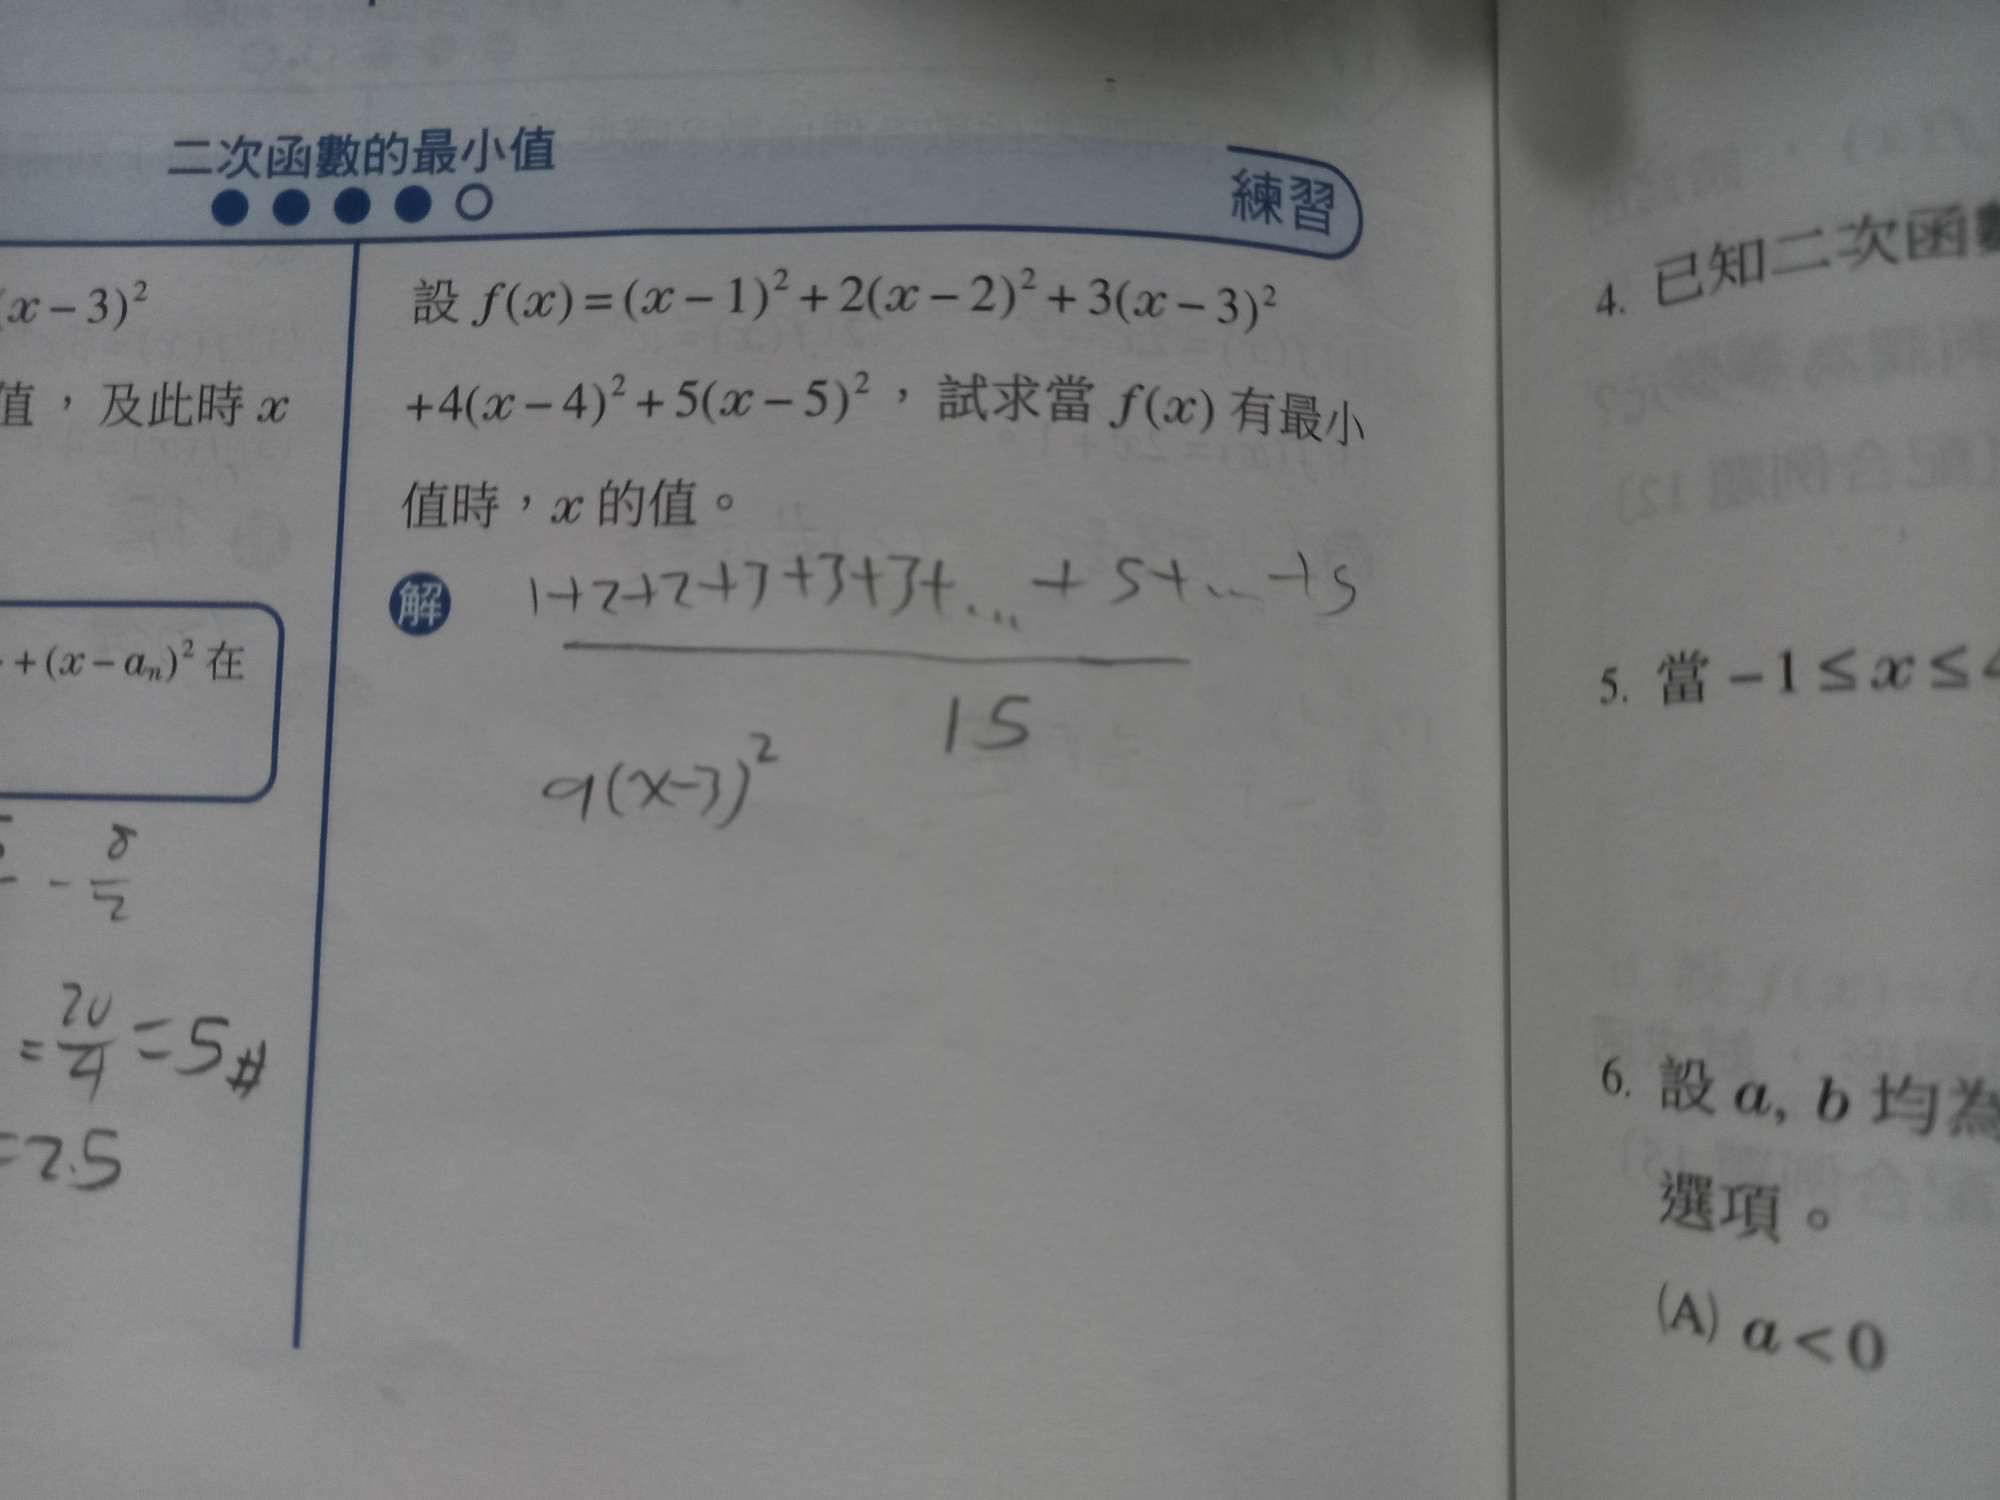 二次函數的最小值
練習
(x-3)²
值，及此時 x
+(x-aₙ)² 在
- 8/2
= 20/4 = 5 #
= 2.5
設 f(x)=(x-1)²+2(x-2)²+3(x-3)²
+4(x-4)²+5(x-5)²，試求當 f(x) 有最小
值時，x 的值。
解
1+2+2+3+3+3+... +5+...+5
15
a(x-3)²
4. 已知二次函
5. 當 -1≤x≤4
6. 設 a, b 均為
選項。
(A) a<0